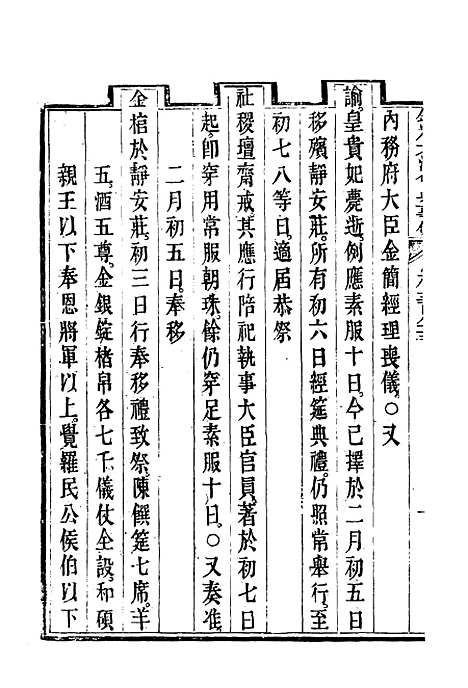 內務府大臣金簡經理喪儀。○又
諭。皇貴妃薨逝。例應素服十日。今已擇於二月初五日
移殯靜安莊。所有初六日經筵典禮。仍照常舉行。至
初七八等日。適居恭祭
社稷壇齋戒。其應行陪祀執事大臣官員。著於初七日
起。卽穿用常服朝珠。餘仍穿足素服十日。○又奏准。
二月初五日。奉移
金棺於靜安莊。初三日行奉移禮致祭。陳饌筵七席。羊
五。酒五尊。金銀錠楮帛各七千。儀仗全設。和碩
親王以下奉恩將軍以上。覺羅民公侯伯以下